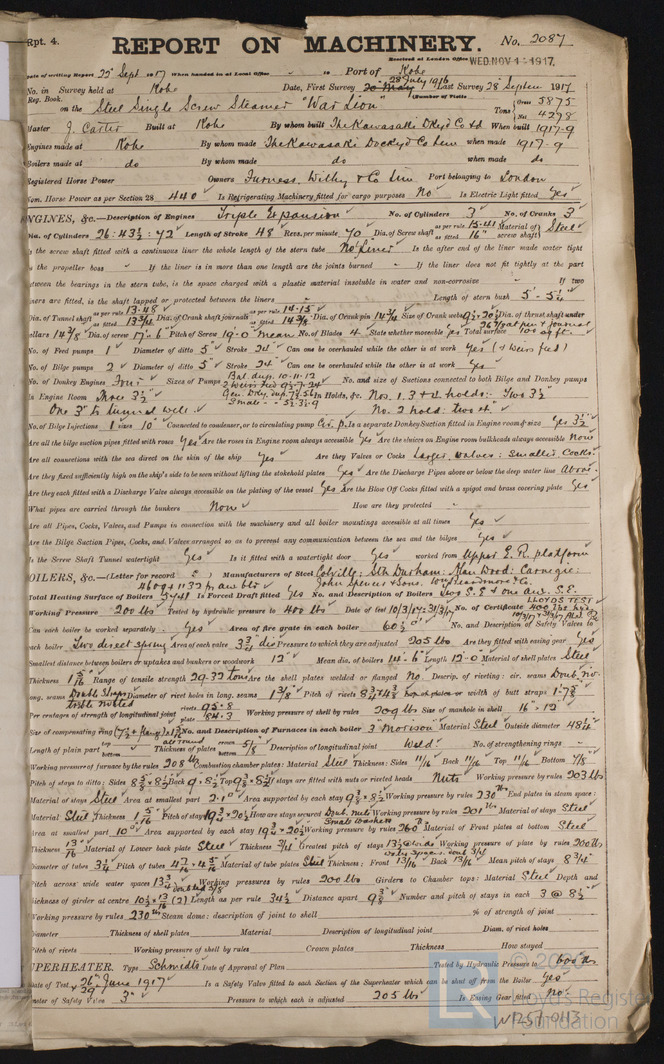 Rpt. 4.
REPORT ON MACHINERY.
No. 2087
Received at London Office WED. NOV 14 1917.
Date of writing Report 22 Sept 1917 When handed in at Local Office - 10 Port of Kobe
No. in Survey held at Kobe Date, First Survey 28 July 1916 Last Survey 28 Septem 1917
Reg. Book. (Number of Visits
on the Steel Single Screw Steamer "War Lion" Tons Gross 5875 Net 4278
Master J. Carter Built at Kobe By whom built The Kawasaki Dkyd Co Ld When built 1917-9
Engines made at Kobe By whom made The Kawasaki Dockyd Co Lim when made 1917-9
Boilers made at do By whom made do when made do
Registered Horse Power Owners Furness, Withy & Co Lim Port belonging to London
Nom. Horse Power as per Section 28 440 Is Refrigerating Machinery fitted for cargo purposes No Is Electric Light fitted Yes
ENGINES, &c.—Description of Engines Triple Expansion No. of Cylinders 3 No. of Cranks 3
Dia. of Cylinders 26 : 43½ : 72 Length of Stroke 48 Revs. per minute 70 Dia. of Screw shaft as per rule 15.41 as fitted 16" Material of screw shaft Steel
Is the screw shaft fitted with a continuous liner the whole length of the stern tube No liner Is the after end of the liner made water tight
in the propeller boss - If the liner is in more than one length are the joints burned - If the liner does not fit tightly at the part
between the bearings in the stern tube, is the space charged with a plastic material insoluble in water and non-corrosive - If two
liners are fitted, is the shaft lapped or protected between the liners - Length of stern bush 5'-5¼"
Dia. of Tunnel shaft as per rule 13.48 as fitted 13¾ Dia. of Crank shaft journals as per rule 14.15 as fitted 14⅜ Dia. of Crank pin 14¾ Size of Crank webs Dia. of thrust shaft under
collars 14⅜ Dia. of screw 17'-6" Pitch of Screw 19'-0" mean No. of Blades 4 State whether moveable Yes Total surface
No. of Feed pumps 1 Diameter of ditto 5" Stroke 24" Can one be overhauled while the other is at work Yes (& weirs feed)
No. of Bilge pumps 2 Diameter of ditto 5" Stroke 24" Can one be overhauled while the other is at work Yes
No. of Donkey Engines Four Sizes of Pumps Bal. dup. 10-11-12 No. and size of Suctions connected to both Bilge and Donkey pumps
In Engine Room Three 3½ In Holds, &c. Nos. 1, 3 & 4 holds:- Two 3½
One 3" to tunnel well. No. 2 hold: two 4"
No. of Bilge Injections 1 sizes 10" Connected to condenser, or to circulating pump Cir. p. Is a separate Donkey Suction fitted in Engine room & size Yes 3½"
Are all the bilge suction pipes fitted with roses Yes Are the roses in Engine room always accessible Yes Are the sluices on Engine room bulkheads always accessible None
Are all connections with the sea direct on the skin of the ship Yes Are they Valves or Cocks Larger valves: smaller cocks
Are they fixed sufficiently high on the ship's side to be seen without lifting the stokehold plates Yes Are the Discharge Pipes above or below the deep water line Above
Are they each fitted with a Discharge Valve always accessible on the plating of the vessel Yes Are the Blow Off Cocks fitted with a spigot and brass covering plate Yes
What pipes are carried through the bunkers None How are they protected -
Are all Pipes, Cocks, Valves, and Pumps in connection with the machinery and all boiler mountings accessible at all times Yes
Are the Bilge Suction Pipes, Cocks, and Valves arranged so as to prevent any communication between the sea and the bilges Yes
Is the Screw Shaft Tunnel watertight Yes Is it fitted with a watertight door Yes worked from Upper E. R. platform
BOILERS, &c.—(Letter for record S) Manufacturers of Steel Colville; Sth Durham: Alan Wood: Carnegie:
John Spencer & Sons. Wm Beardmore & Co.
Total Heating Surface of Boilers Is Forced Draft fitted Yes No. and Description of Boilers Two S.E & one Aux. S.E.
Working Pressure 200 lbs Tested by hydraulic pressure to 400 lbs Date of test 10/3/17: 31/3/17 No. of Certificate LLOYDS TEST 400 lbs
Can each boiler be worked separately Yes Area of fire grate in each boiler 60½ No. and Description of Safety Valves to
each boiler Two direct spring Area of each valve 3¾ dia Pressure to which they are adjusted 205 lbs Are they fitted with easing gear Yes
Smallest distance between boilers or uptakes and bunkers or woodwork 12" Mean dia. of boilers 14'-6" Length 12'-0" Material of shell plates Steel
Thickness 1 5/16 Range of tensile strength 29.32 tons Are the shell plates welded or flanged No Descrip. of riveting: cir. seams Doub. riv.
long. seams Double straps treble riveted Diameter of rivet holes in long. seams 1⅜ Pitch of rivets Lap of plates or width of butt straps 1-7⅞
Per centages of strength of longitudinal joint rivets 95.8 plate 84.3 Working pressure of shell by rules 209 lbs Size of manhole in shell 16" 12"
Size of compensating ring No. and Description of Furnaces in each boiler 3 Morison Material Steel Outside diameter 48¼"
Length of plain part top bottom Thickness of plates crown bottom 5/8 Description of longitudinal joint Weld No. of strengthening rings -
Working pressure of furnace by the rules 208 lbs Combustion chamber plates: Material Steel Thickness: Sides 11/16 Back 11/16 Top 11/16 Bottom 7/8
Pitch of stays to ditto: Sides Back Top If stays are fitted with nuts or riveted heads Nuts Working pressure by rules 203 lbs
Material of stays Steel Area at smallest part 2.1" Area supported by each stay Working pressure by rules 230 lbs End plates in steam space:
Material Steel Thickness 1 5/16 Pitch of stays 19¾ × 20½ How are stays secured Doub. nuts Small washers Working pressure by rules 201 lbs Material of stays Steel
Area at smallest part 10" Area supported by each stay 19¾ × 20½ Working pressure by rules 260 lbs Material of Front plates at bottom Steel
Thickness 13/16 Material of Lower back plate Steel Thickness 3/4" Greatest pitch of stays Working pressure of plate by rules 200 lbs
Diameter of tubes 3¼ Pitch of tubes Material of tube plates Steel Thickness: Front 13/16 Back 13/16 Mean pitch of stays 8¾"
Pitch across wide water spaces 13¾ Working pressures by rules 200 lbs Girders to Chamber tops: Material Steel Depth and
thickness of girder at centre (2) Length as per rule 34½ Distance apart 9⅜ Number and pitch of stays in each 3 @ 8½
Working pressure by rules 230 lbs Steam dome: description of joint to shell % of strength of joint
Diameter Thickness of shell plates Material Description of longitudinal joint Diam. of rivet holes
Pitch of rivets Working pressure of shell by rules Crown plates Thickness How stayed
SUPERHEATER. Type Schmidts Date of Approval of Plan Tested by Hydraulic Pressure to 600 lbs
Date of Test 26 29 June 1917 Is a Safety Valve fitted to each Section of the Superheater which can be shut off from the Boiler Yes
Diameter of Safety Valve 3" Pressure to which each is adjusted 205 lbs Is Easing Gear fitted No
© 2020
Lloyd's Register
Foundation
W1257-0113